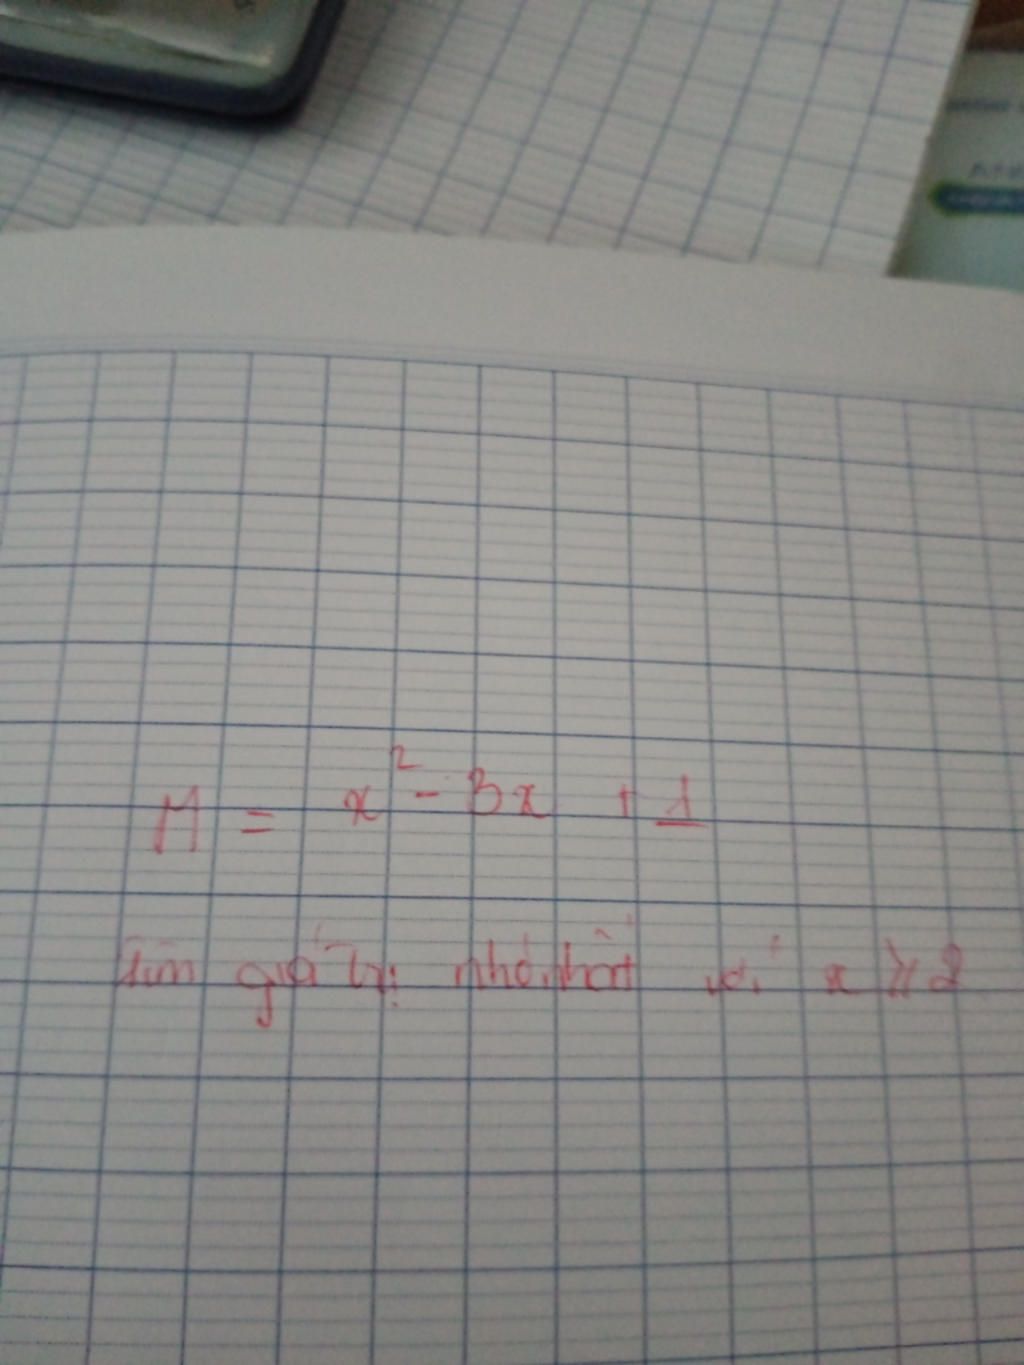 M = x² - 3x + 1
Tìm giá trị nhỏ nhất với x ≥ 2